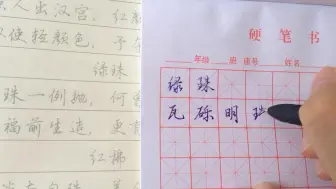 人出汉宫，红颜
使轻颜色，予
绿珠
珠一例抛，何
福前生造，更
红拂
硬笔书
年级 班 座号 姓名
绿珠
瓦砾明珠